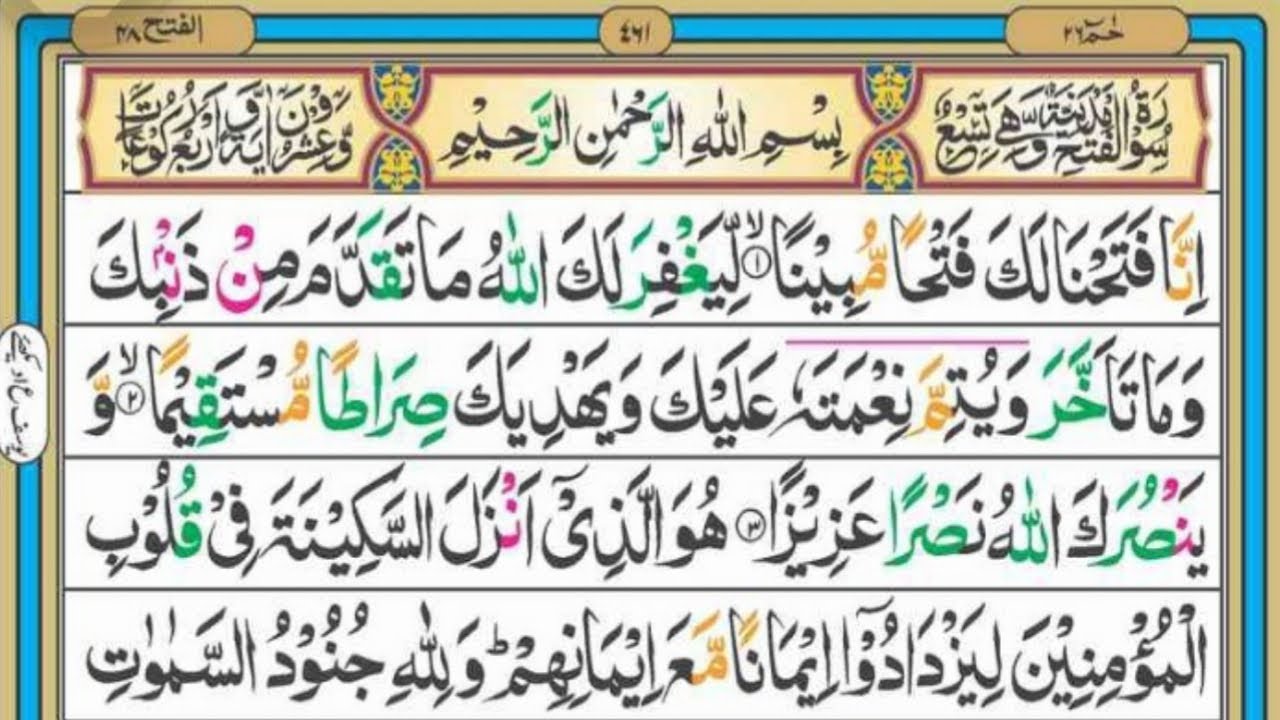 حٰمٓ ٢٦
٤٦١
الفتح ٤٨
سُوْرَةُ الْفَتْحِ مَدَنِيَّةٌ وَّهِيَ تِسْعٌ
بِسْمِ اللهِ الرَّحْمٰنِ الرَّحِيْمِ
وَّعِشْرُوْنَ اٰيَةً وَّاَرْبَعُ رُكُوْعَاتٍ
اِنَّا فَتَحْنَا لَكَ فَتْحًا مُّبِيْنًا ۙ﴿١﴾ لِّيَغْفِرَ لَكَ اللهُ مَا تَقَدَّمَ مِنْ ذَنْۢبِكَ
وَمَا تَاَخَّرَ وَيُتِمَّ نِعْمَتَهٗ عَلَيْكَ وَيَهْدِيَكَ صِرَاطًا مُّسْتَقِيْمًا ۙ﴿٢﴾ وَّ
يَنْصُرَكَ اللهُ نَصْرًا عَزِيْزًا ﴿٣﴾ هُوَ الَّذِيْۤ اَنْزَلَ السَّكِيْنَةَ فِيْ قُلُوْبِ
الْمُؤْمِنِيْنَ لِيَزْدَادُوْۤا اِيْمَانًا مَّعَ اِيْمَانِهِمْ ؕ وَلِلهِ جُنُوْدُ السَّمٰوٰتِ